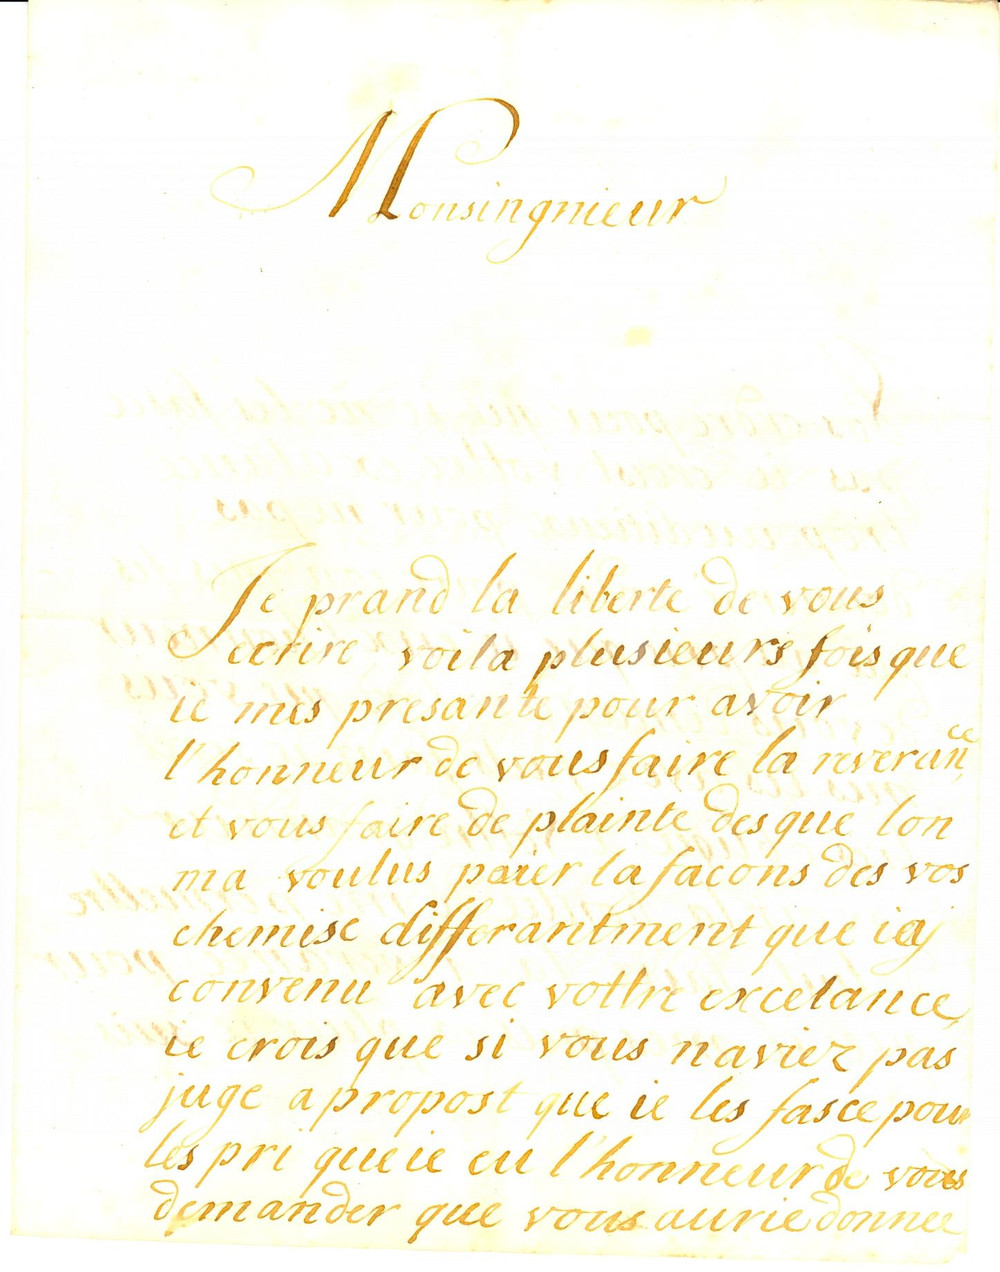 Monsingnieur
Je prand la liberte de vous
ecrire voila plusieurs fois que
ie mes presante pour avoir
l'honneur de vous faire la reverance
et vous faire de plainte des que lon
ma voulus paier la facons des vos
chemise differantment que iay
convenu avec vottre excelance
ie crois que si vous naviez pas
juge a propost que ie les fasce pour
les pri que ie eu l'honneur de vous
demander que vous aurie donnee